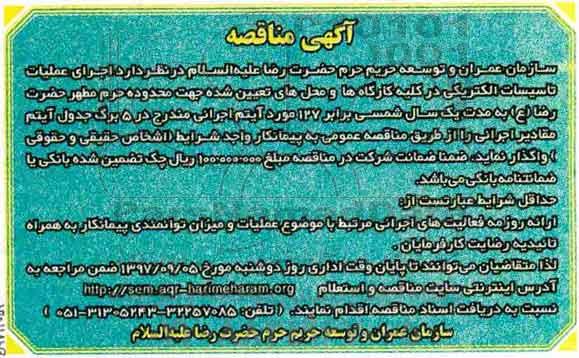 آگهی مناقصه
سازمان عمران و توسعه حریم حرم حضرت رضا علیه‌السلام در نظر دارد اجرای عملیات
تاسیسات الکتریکی در کلیه کارگاه ها و محل های تعیین شده جهت محدوده حرم مطهر حضرت
رضا (ع) به مدت یک سال شمسی برابر ۱۲۷ مورد آیتم اجرائی مندرج در ۵ برگ جدول آیتم
مقادیر اجرائی را از طریق مناقصه عمومی به پیمانکار واجد شرایط (اشخاص حقیقی و حقوقی
) واگذار نماید. ضمنا ضمانت شرکت در مناقصه مبلغ ۱۰۰.۰۰۰.۰۰۰ ریال چک تضمین شده بانکی یا
ضمانتنامه بانکی می‌باشد.
حداقل شرایط عبارتست از:
ارائه روزمه فعالیت های اجرائی مرتبط با موضوع عملیات و میزان توانمندی پیمانکار به همراه
تائیدیه رضایت کارفرمایان .
لذا متقاضیان می‌توانند تا پایان وقت اداری روز دوشنبه مورخ ۱۳۹۷/۰۹/۰۵ ضمن مراجعه به
آدرس اینترنتی سایت مناقصه و استعلام http://sem.aqr-harimeharam.org
نسبت به دریافت اسناد مناقصه اقدام نمایند. (تلفن: ۳۲۲۵۷۰۸۵-۳۱۳۰۵۲۴۳-۰۵۱ )
سازمان عمران و توسعه حریم حرم حضرت رضا علیه‌السلام